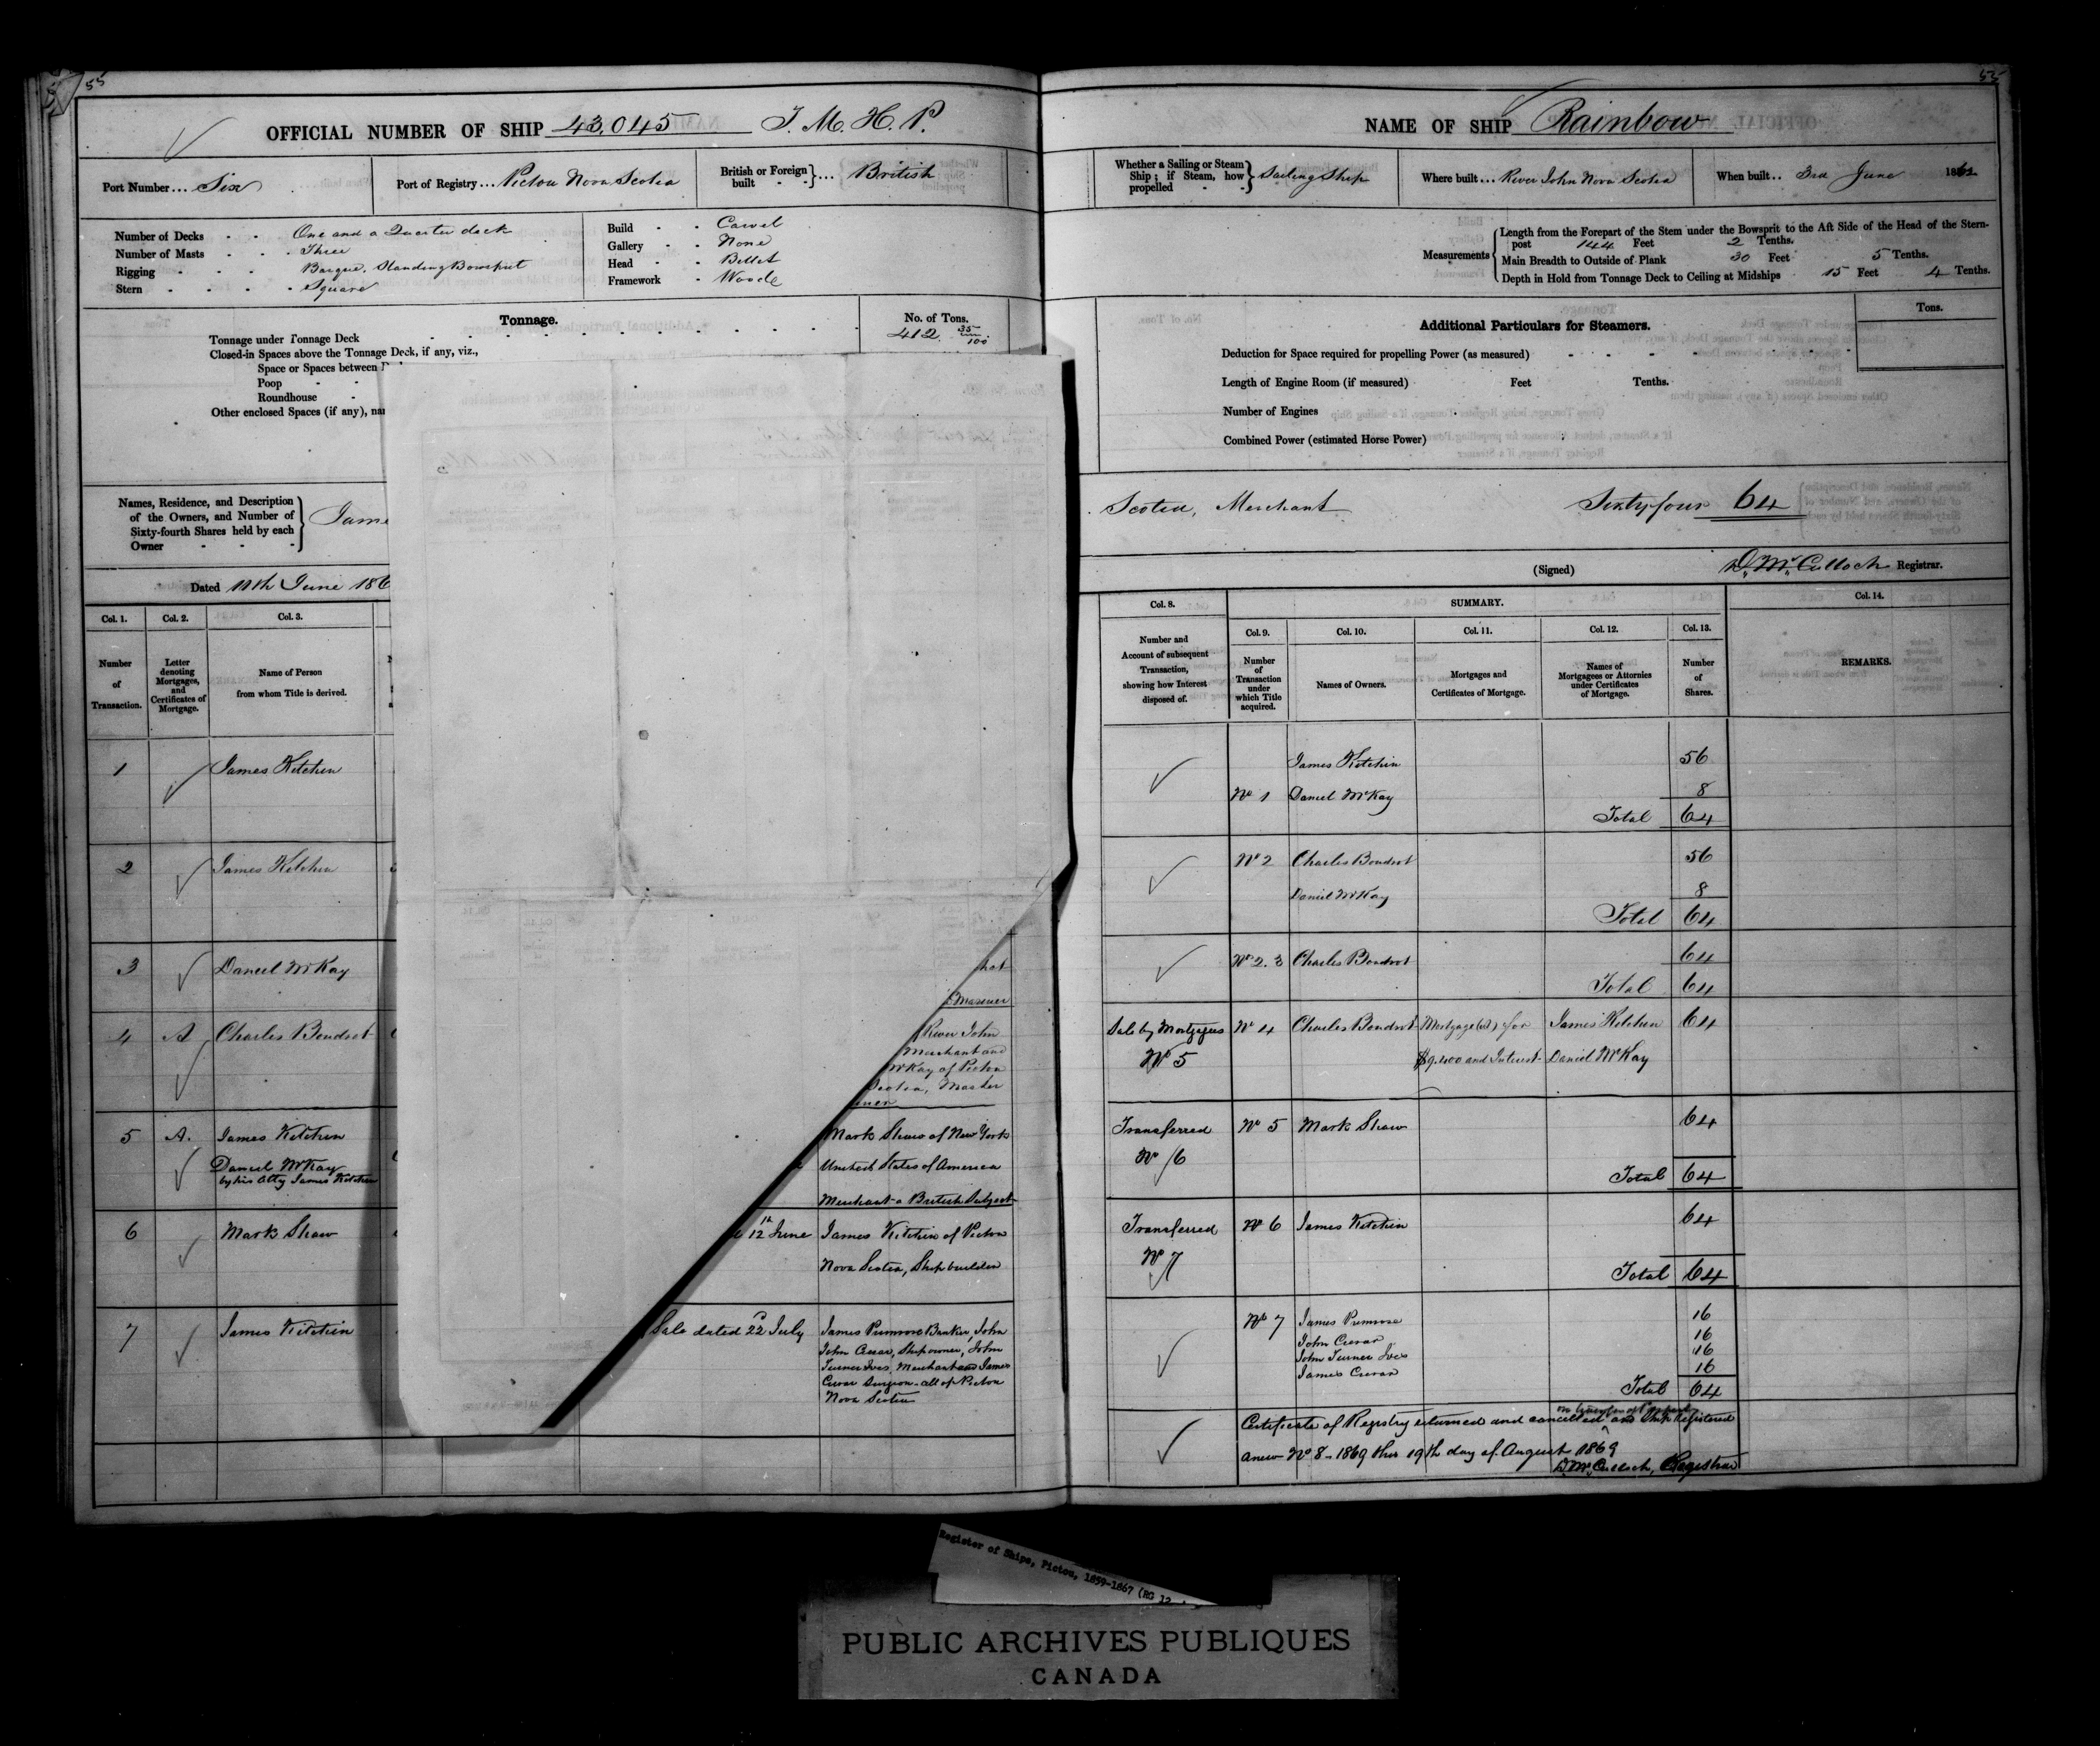 55
OFFICIAL NUMBER OF SHIP 43,045 T. M. H. P.
Port Number ... Six
Port of Registry ... Pictou Nova Scotia
British or Foreign built ... British
Number of Decks One and a Quarter deck
Number of Masts Three
Rigging Barque, Standing Bowsprit
Stern Square
Build Carvel
Gallery None
Head Billet
Framework Wood
Tonnage.
No. of Tons.
Tonnage under Tonnage Deck 412 35/100
Closed-in Spaces above the Tonnage Deck, if any, viz.,
Space or Spaces between
Poop
Roundhouse
Other enclosed Spaces (if any),
Names, Residence, and Description
of the Owners, and Number of
Sixty-fourth Shares held by each
Owner
Jame
Dated 11th June 186
Col. 1. Col. 2. Col. 3.
Number of Transaction.
Letter denoting Mortgages, and Certificates of Mortgage.
Name of Person from whom Title is derived.
1 James Kitchin
2 James Kitchin
3 Daniel McKay
hat
Mariner
4 A Charles Boudrot
River John
Merchant and
McKay of Pictou
Scotia, Master
iner
5 A. James Kitchin
Daniel McKay
by his Atty James Kitchin
Mark Shaw of New York
United States of America
Merchant a British Subject
6 Mark Shaw
12th June James Kitchin of Pictou
Nova Scotia, Ship builder
7 James Kitchin
Sale dated 22d July James Primrose Banker, John
John Crerar, Ship owner, John
Turner Ives, Merchant and James
Crerar Surgeon all of Pictou
Nova Scotia
55
NAME OF SHIP Rainbow
Whether a Sailing or Steam Ship; if Steam, how propelled Sailing Ship
Where built ... River John Nova Scotia
When built .. 3rd June 1862
Measurements
Length from the Forepart of the Stem under the Bowsprit to the Aft Side of the Head of the Stern-
post 144 Feet 2 Tenths.
Main Breadth to Outside of Plank 30 Feet 5 Tenths.
Depth in Hold from Tonnage Deck to Ceiling at Midships 15 Feet 4 Tenths.
Additional Particulars for Steamers.
Tons.
Deduction for Space required for propelling Power (as measured)
Length of Engine Room (if measured) Feet Tenths.
Number of Engines
Combined Power (estimated Horse Power)
Scotia, Merchant Sixty four 64
(Signed) D. McCulloch Registrar.
Col. 8. SUMMARY. Col. 14.
Col. 9. Col. 10. Col. 11. Col. 12. Col. 13.
Number and Account of subsequent Transaction, showing how Interest disposed of.
Number of Transaction under which Title acquired.
Names of Owners.
Mortgages and Certificates of Mortgage.
Names of Mortgagees or Attornies under Certificates of Mortgage.
Number of Shares.
REMARKS.
James Kitchin 56
No 1 Daniel McKay 8
Total 64
No 2 Charles Boudrot 56
Daniel McKay 8
Total 64
No 2.3 Charles Boudrot 64
Total 64
Sale by Mortgagees No 4 Charles Boudrot Mortgage (A) for James Kitchin 64
No 5 $9.400 and Interest Daniel McKay
Transferred No 5 Mark Shaw 64
No 6
Total 64
Transferred No 6 James Kitchin 64
No 7
Total 64
No 7 James Primrose 16
John Crerar 16
John Turner Ives 16
James Crerar 16
Total 64
Certificate of Registry returned and cancelled and Ship Registered
anew No 8 - 1869 this 19th day of August 1869
D. McCulloch, Registrar
Register of Ships, Pictou, 1859-1867 (RG 12
PUBLIC ARCHIVES PUBLIQUES
CANADA